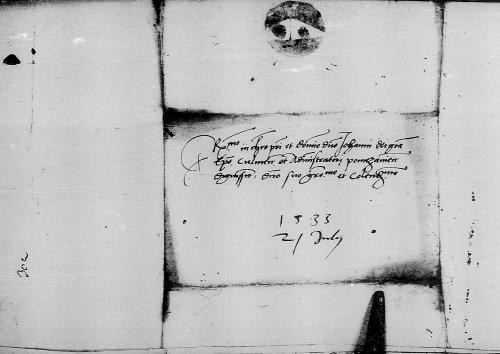 R^mo in chro pri et domino dno Johanni dei gra
Epo Culmen et Administratori pomezanien
dignissimo: dno suo gr^mo et Colendissimo
1533
21 July
302